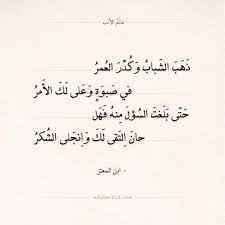 عالم الأدب
ذَهَبَ الشَّبابُ وَكُدِّرَ العُمرُ
في صَبوَةٍ وَعَلى لَكَ الأَمرُ
حَتّى بَلَغتَ السُؤلَ مِنهُ فَهَل
حانَ التُقى لَكَ وَاِنجَلى الشُكرُ
- ابن المعتز -
adabworld.com